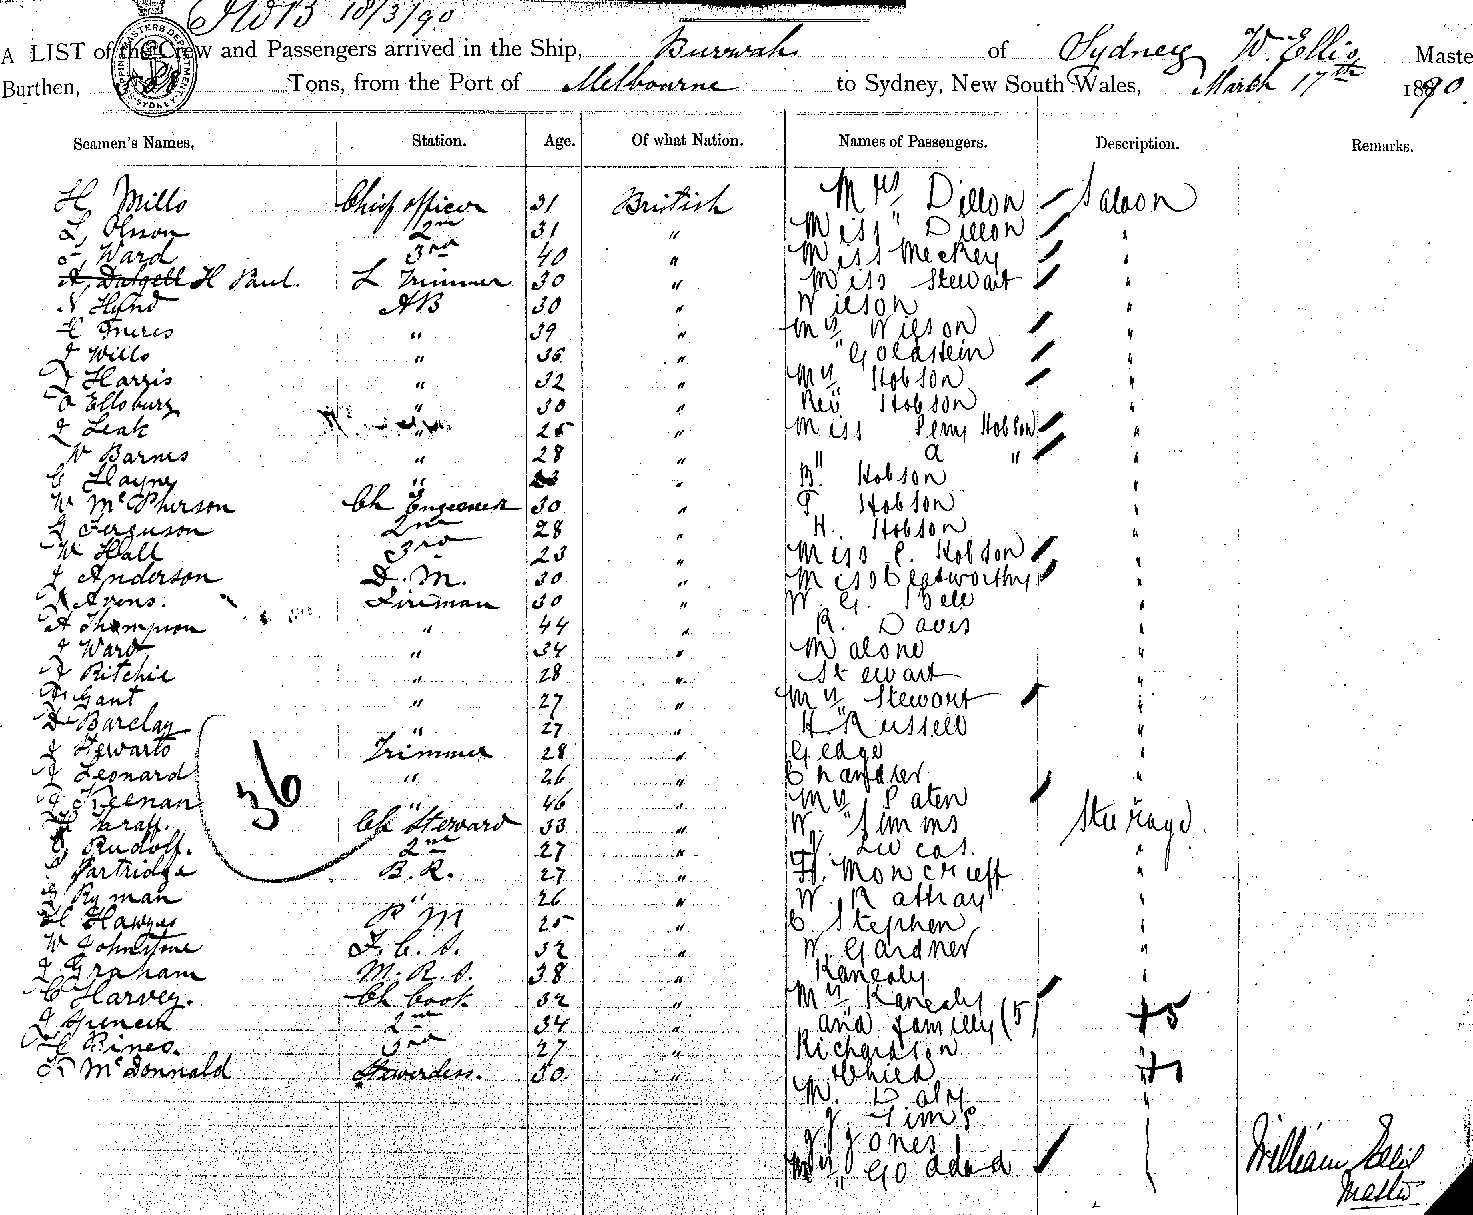 18/3/90
A LIST of the Crew and Passengers arrived in the Ship, Burrwah of Sydney W. Ellis Maste
Burthen, Tons, from the Port of Melbourne to Sydney, New South Wales, March 17th 1890.
Seamen's Names, Station. Age. Of what Nation. Names of Passengers. Description. Remarks.
H Mills Chief officer 31 British Mrs Dillon Saloon
L, Olsson 2nd 31 " Miss " Dillon "
Ward 3rd 40 " Miss Meckey "
A, Dalgell H Paul. L Trimmer 30 " Miss Stewart "
Hynd AB 30 " Wilson "
" 39 " Mrs Wilson "
J Wills " 36 " " Goldstein "
Harris " 32 " Mrs Hobson "
O Ellsbury " 30 " Rev Hobson "
J Leak " 25 " Miss Perry Hobson "
W Barnes " 28 " " a " "
C Hayne " 23 " B. Hobson "
W McPherson Ch Engeneer 30 " F Hobson "
J Ferguson 2nd 28 " H. Hobson "
W Hall 3rd 23 " Miss C. Hobson "
J Anderson D. M. 30 " Miss "
Avens. Fireman 30 " W. G. Bell "
A Thompson " 44 " R. Davis "
J Ward " 34 " Malone "
Ritchie " 28 " Stewart "
Gant " 27 " Mrs Stewart "
Barclay " 27 " H Russell "
J Stewarts Trimmer 28 " Gedge "
J Leonard " 26 " Chandler "
J Keenan " 46 " Mrs Paten "
36
Ch Steward 33 " W. Simms Steerage
Rudolf. 2nd 27 " Lucas. "
Partridge B. R. 27 " H. Moncrieff "
Ryman " 26 " W Rattray "
H Hawyes P M 25 " C Stephen "
W Johnstone F. C. S. 32 " W. Gardner "
J Graham M. R. S. 38 " Kanealy "
C Harvey. Ch Cook 32 " Mrs Kanealy "
J Spencer 2nd 34 " and familly (5) +5
H Pines. 3rd 27 " Richardson "
McDonnald Stewerdess. 30 " Child +1
M. Daly "
J. Tims
J Jones
Mrs Goddard
William Ellis
Master